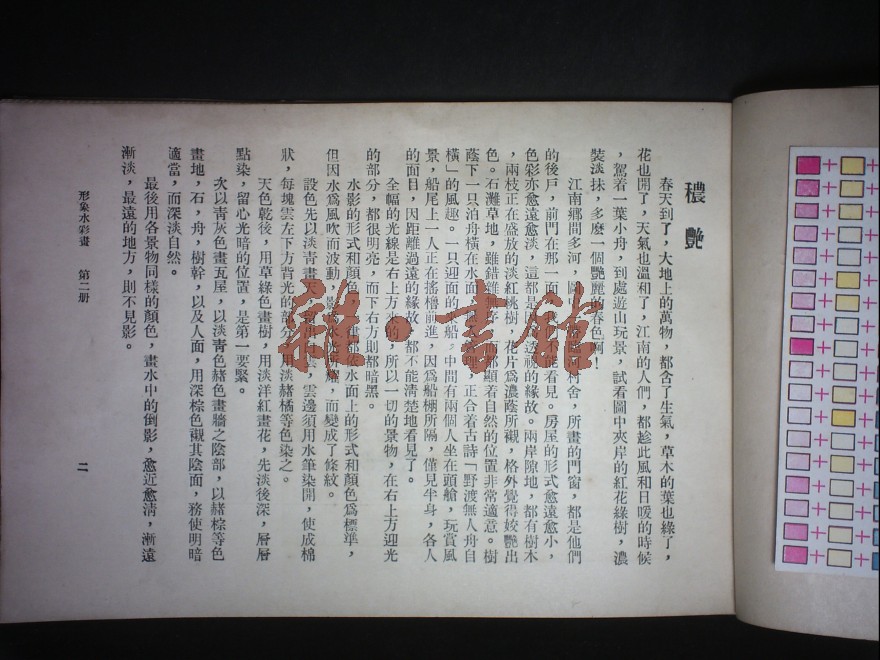 穠艷
春天到了，大地上的萬物，都含了生氣，草木的葉也綠了，
花也開了，天氣也溫和了，江南的人們，都趁此風和日暖的時候
，駕着一葉小舟，到處遊山玩景，試看圖中夾岸的紅花綠樹，濃
裝淡抹，多麼一個艷麗的春色啊！
江南鄉間多河，臨河村舍，所畫的門窗，都是他們
的後戶，前門在那一面，不能看見。房屋的形式愈遠愈小，
色彩亦愈遠愈淡，這都是因透視的緣故。兩岸隙地，都有樹木
，兩枝正在盛放的淡紅桃樹，花片爲濃蔭所襯，格外覺得姣艷出
色。石灘草地，雖錯雜無序，而都顯着自然的位置非常適意。樹
蔭下一只泊舟橫在水面，正合着古詩「野渡無人舟自
橫」的風趣。一只迎面的船，中間有兩個人坐在頭艙，玩賞風
景，船尾上一人正在搖櫓前進，因爲船棚所隔，僅見半身，各人
的面目，因距離過遠的緣故，都不能清楚地看見了。
全幅的光線是右上方來的，所以一切的景物，在右上方迎光
的部分，都很明亮，而下右方則都暗黑。
水影的形式和顏色，都依水面上的形式和顏色爲標準，
但因水爲風吹而波動，影爲水光所耀，而變成了條紋。
設色先以淡青畫天，雲邊須用水筆染開，使成棉
狀，每塊雲左下方背光的部分，用淡赭橘等色染之。
天色乾後，用草綠色畫樹，用淡洋紅畫花，先淡後深，層層
點染，留心光暗的位置，是第一要緊。
次以青灰色畫瓦屋，以淡青色赭色畫牆之陰部，以赭棕等色
畫地，石，舟，樹幹，以及人面，用深棕色襯其陰面，務使明暗
適當，而深淡自然。
最後用各景物同樣的顏色，畫水中的倒影，愈近愈清，漸遠
漸淡，最遠的地方，則不見影。
形象水彩畫　第二册
二
雜·書館